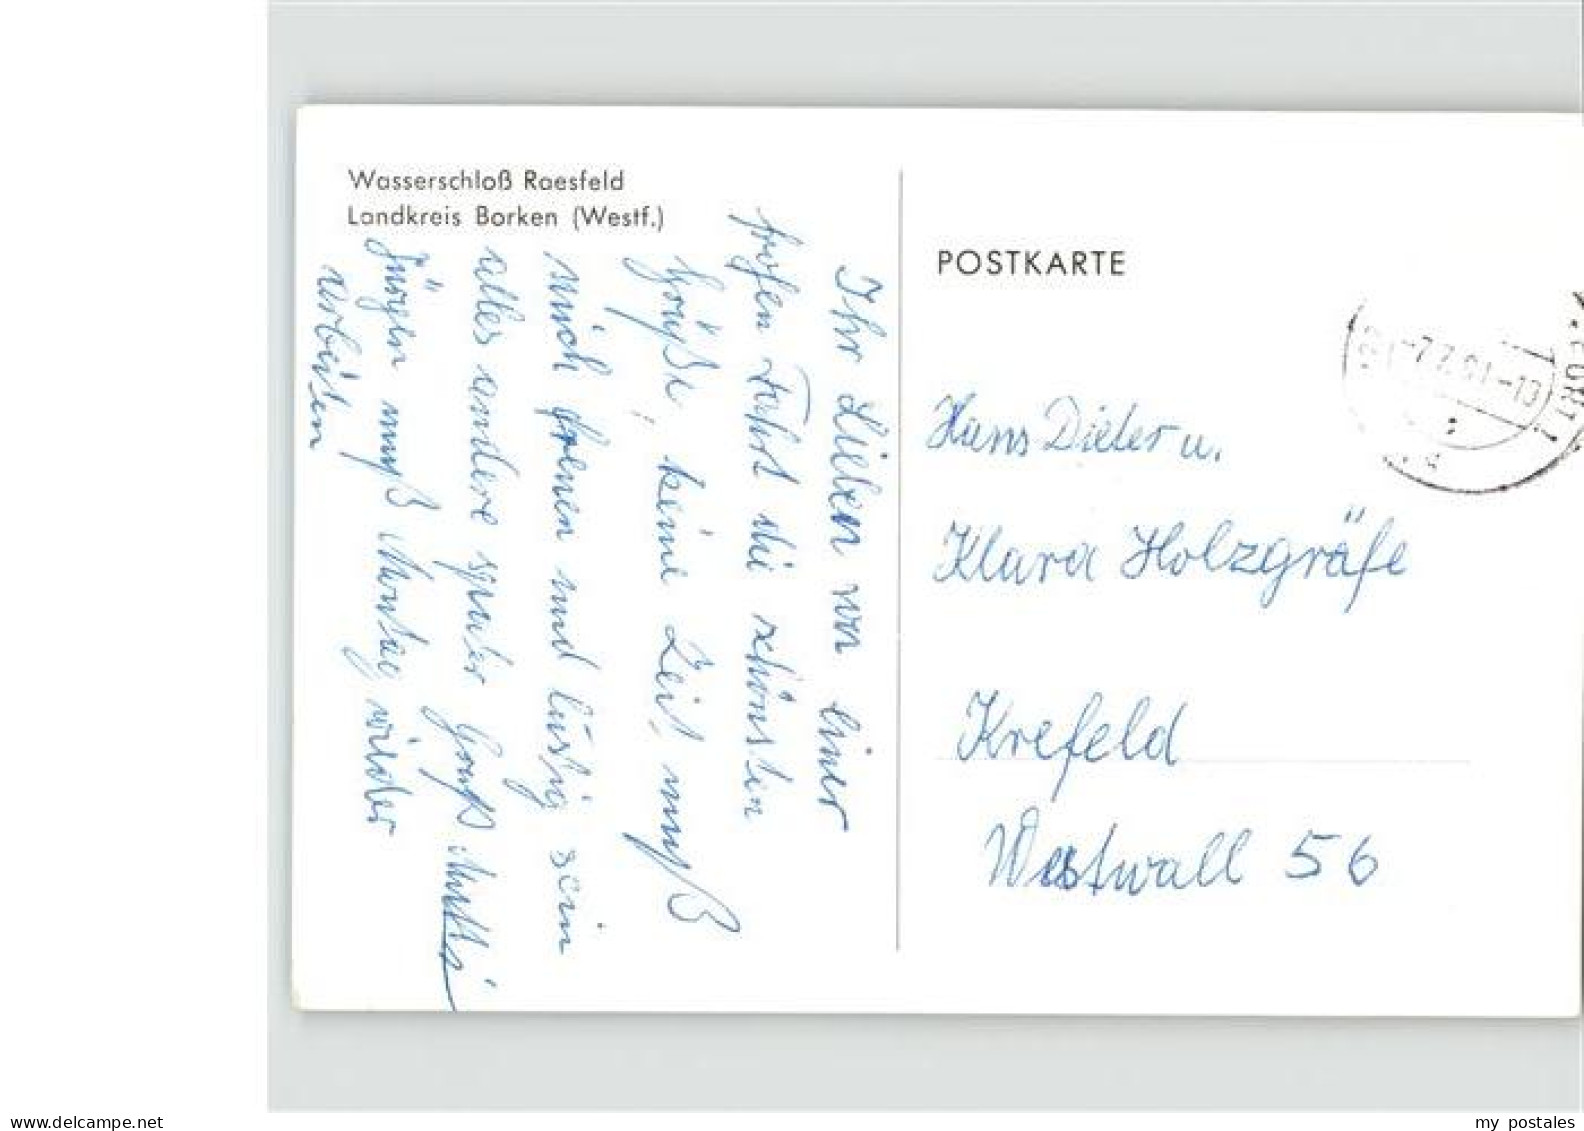 Wasserschloß Raesfeld
Landkreis Borken (Westf.)
Ihr Lieben von einer
großen Fahrt die schönsten
Grüße, keine Zeit, muß
mich freuen und lustig sein
alles andere später Gruß Mutti
Jürgen muß Montag wieder
arbeiten
POSTKARTE
-7.7.61-13
Hans Dieter u.
Klara Holzgräfe
Krefeld
Westwall 56
www.delcampe.net
my postales